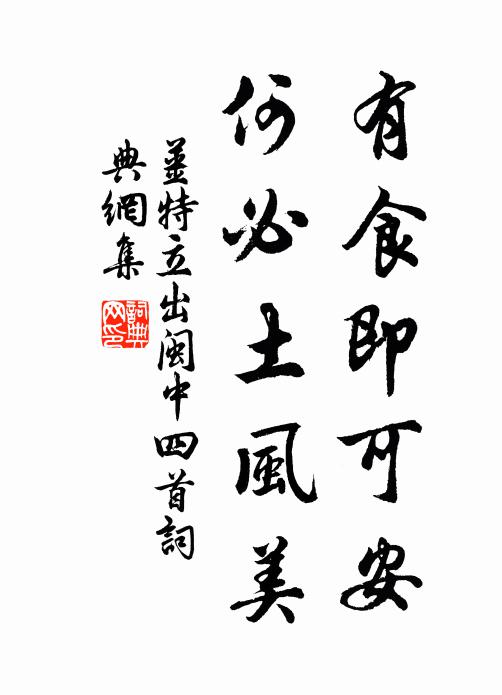 有食即可安
何必土風美
姜特立出閩中四首詞
典網集
詞典
网印